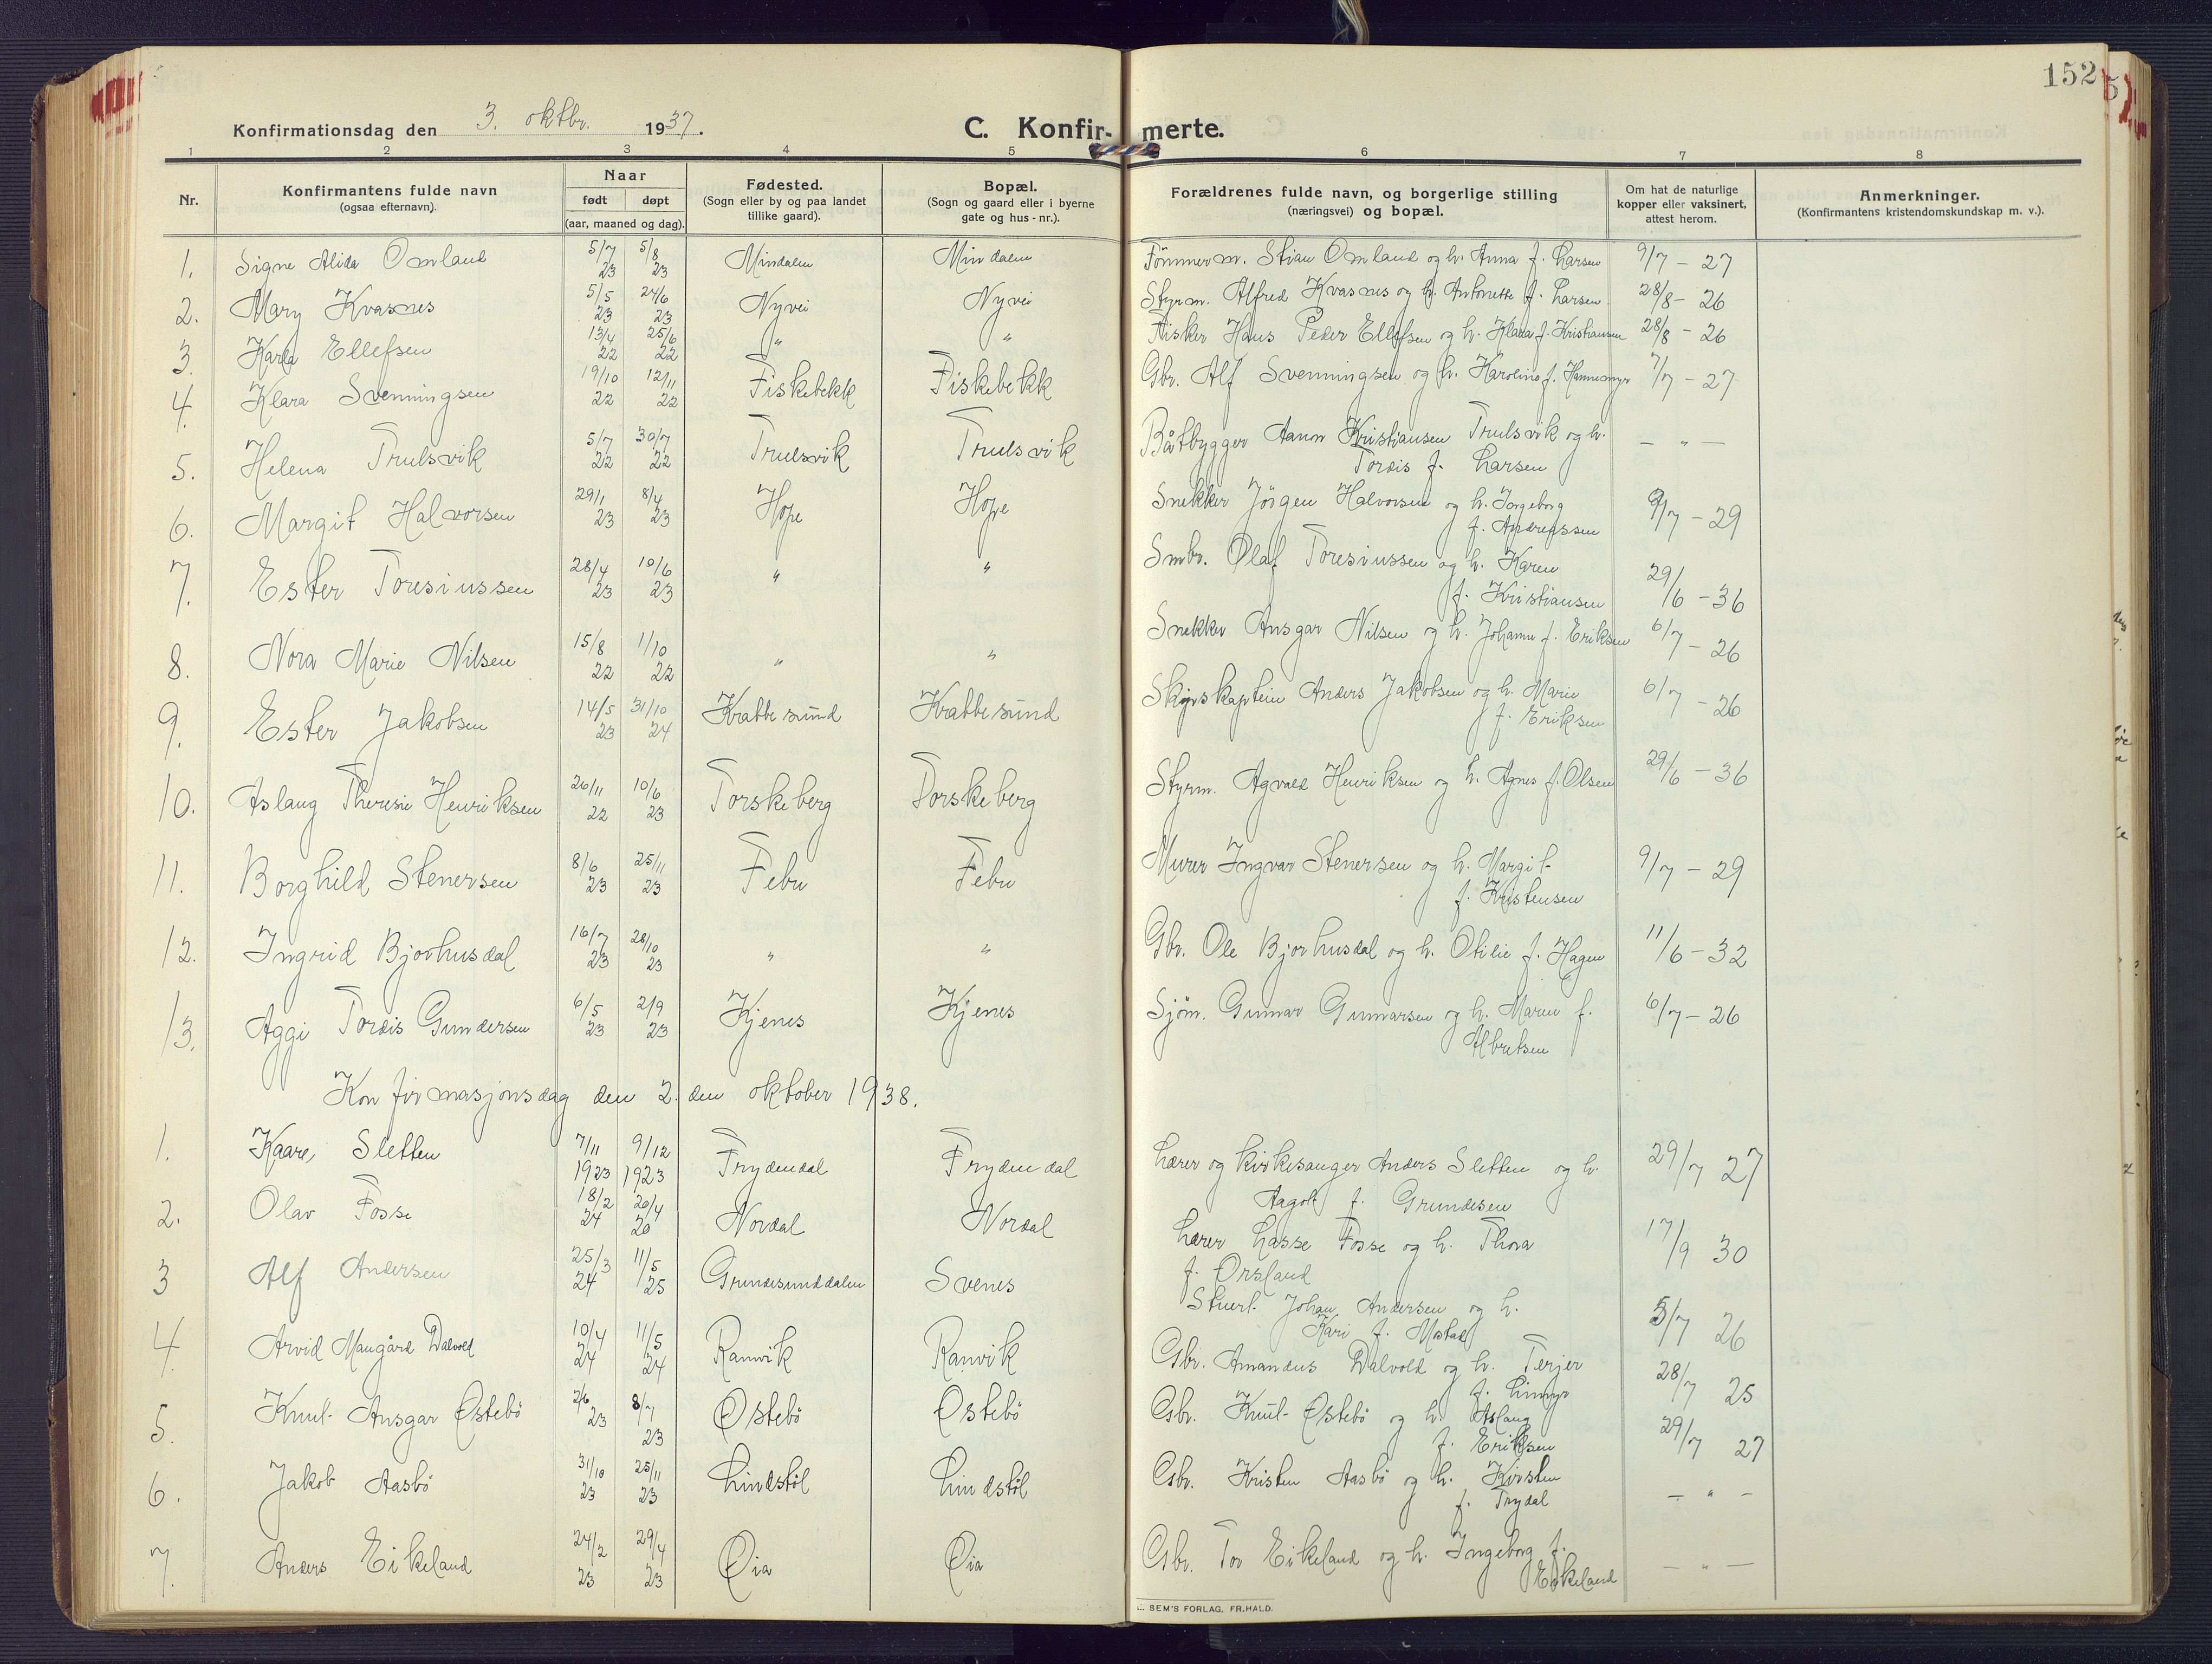 152
Konfirmationsdag den 3. oktbr. 1937.
C. Konfir- merte.
1 2 3 4 5 6 7 8
Nr.
Konfirmantens fulde navn
(ogsaa efternavn).
Naar
født døpt
(aar, maaned og dag).
Fødested.
(Sogn eller by og paa landet
tillike gaard).
Bopæl.
(Sogn og gaard eller i byerne
gate og hus-nr.).
Forældrenes fulde navn, og borgerlige stilling
(næringsvei) og bopæl.
Om hat de naturlige
kopper eller vaksinert,
attest herom.
Anmerkninger.
(Konfirmantens kristendomskundskap m. v.).
1. Signe Alida Omland 5/7 23 5/8 23 Mindalen Mindalen Tömmerm. Stian Omland og h. Anna f. Larsen 9/7 - 27
2. Mary Kvasnes 5/5 23 24/6 23 Nyvei Nyvei Styrm. Alfred Kvasnes og h. Antonette f. Larsen 28/8 - 26
3. Karla Ellefsen 13/4 22 25/6 22 " " Fisker Hans Peder Ellefsen og h. Klara f. Kristiansen 28/8 - 26
4. Klara Svenningsen 19/10 22 12/11 22 Fiskebekk Fiskebekk Gbr. Alf Svenningsen og h. Karoline f. Hannemyr 7/7 - 27
5. Helena Trulsvik 5/7 22 30/7 22 Trulsvik Trulsvik Båtbygger Aanon Kristiansen Trulsvik og h.
Tordis f. Larsen - " -
6. Margit Halvorsen 29/1 23 8/4 23 Hope Hope Snekker Jörgen Halvorsen og h. Ingeborg
f. Andreassen 9/7 - 29
7. Ester Toresiussen 28/4 23 10/6 23 " " Smbr. Olaf Toresiussen og h. Karen
f. Kristiansen 29/6 - 36
8. Nora Marie Nilsen 15/8 22 1/10 22 " " Snekker Ansgar Nilsen og h. Johanne f. Eriksen 6/7 - 26
9. Ester Jakobsen 14/5 23 31/10 24 Krabbesund Krabbesund Skipskaptein Anders Jakobsen og h. Marie
f. Eriksen 6/7 - 26
10. Aslaug Theresie Henriksen 26/11 22 10/6 23 Torskeberg Torskeberg Styrm. Agvald Henriksen og h. Agnes f. Olsen 29/6 - 36
11. Borghild Stenersen 8/6 23 25/11 23 Febu Febu Murer Ingvar Stenersen og h. Margit
f. Kristensen 9/7 - 29
12. Ingrid Bjorhusdal 16/7 23 28/10 23 " " Gbr. Ole Bjorhusdal og h. Otilie f. Hagen 11/6 - 32
13. Aggi Tordis Gundersen 6/5 23 2/9 23 Kjenes Kjenes Sjöm. Gunnar Gunnarsen og h. Maren f.
Albretsen 6/7 - 26
Konfirmasjonsdag den 2. den oktober 1938.
1. Kaare Sletten 7/11 1923 9/12 1923 Frydendal Frydendal Lærer og kirkesanger Anders Sletten og h.
Aagot f. Grundesen 29/7 27
2. Olav Fosse 18/2 24 20/4 20 Nordal Nordal Lærer Lasse Fosse og h. Thora
f. Örsland 17/9 30
3 Alf Andersen 25/3 24 11/5 25 Grundesunddalen Svenes Stuert Johan Andersen og h.
Kari f. 5/7 26
4. Arvid Maugård Dalvold 10/4 24 11/5 24 Ramvik Ranvik Gbr. Amandus Dalvold og h. Terjer
f. Linmyr 28/7 25
5. Knut Ansgar Østebö 2/6 23 8/7 23 Østebö Østebö Gbr. Knut Østebö og h. Aslaug
f. Eriksen 29/7 27
6. Jakob Aasbö 31/10 23 25/11 23 Lindstöl Lindstöl Gbr. Kristen Aasbö og h. Kirsten
f. Trydal - " -
7. Anders Eikeland 24/2 23 29/4 23 Øia Øia Gbr. Tor Eikeland og h. Ingeborg f.
Eikeland - " -
SEM'S FORLAG, FR.HALD.